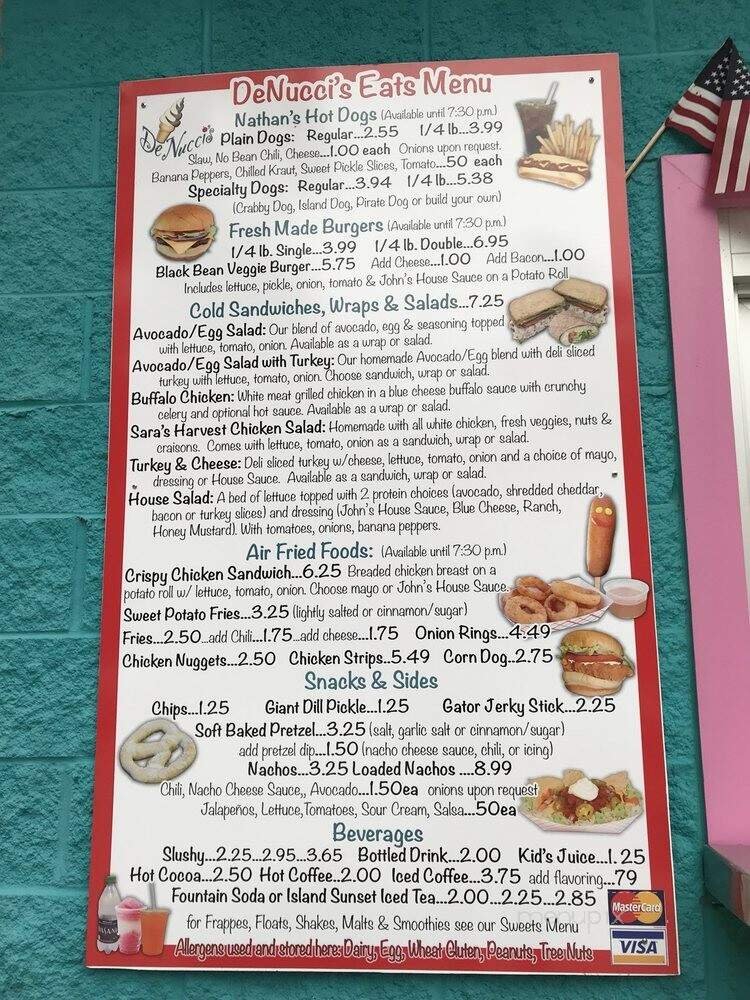 DeNucci's Eats Menu
DeNucci's
Nathan's Hot Dogs (Available until 7:30 p.m.)
Plain Dogs: Regular...2.55 1/4 lb...3.99
Slaw, No Bean Chili, Cheese...1.00 each Onions upon request.
Banana Peppers, Chilled Kraut, Sweet Pickle Slices, Tomato...50 each
Specialty Dogs: Regular...3.94 1/4 lb...5.38
(Crabby Dog, Island Dog, Pirate Dog or build your own)
Fresh Made Burgers (Available until 7:30 p.m.)
1/4 lb. Single...3.99 1/4 lb. Double...6.95
Black Bean Veggie Burger...5.75 Add Cheese...1.00 Add Bacon...1.00
Includes lettuce, pickle, onion, tomato & John's House Sauce on a Potato Roll
Cold Sandwiches, Wraps & Salads...7.25
Avocado/Egg Salad: Our blend of avocado, egg & seasoning topped
with lettuce, tomato, onion. Available as a wrap or salad.
Avocado/Egg Salad with Turkey: Our homemade Avocado/Egg blend with deli sliced
turkey with lettuce, tomato, onion. Choose sandwich, wrap or salad.
Buffalo Chicken: White meat grilled chicken in a blue cheese buffalo sauce with crunchy
celery and optional hot sauce. Available as a wrap or salad.
Sara's Harvest Chicken Salad: Homemade with all white chicken, fresh veggies, nuts &
craisons. Comes with lettuce, tomato, onion as a sandwich, wrap or salad.
Turkey & Cheese: Deli sliced turkey w/cheese, lettuce, tomato, onion and a choice of mayo,
dressing or House Sauce. Available as a sandwich, wrap or salad.
House Salad: A bed of lettuce topped with 2 protein choices (avocado, shredded cheddar,
bacon or turkey slices) and dressing (John's House Sauce, Blue Cheese, Ranch,
Honey Mustard). With tomatoes, onions, banana peppers.
Air Fried Foods: (Available until 7:30 p.m.)
Crispy Chicken Sandwich...6.25 Breaded chicken breast on a
potato roll w/ lettuce, tomato, onion. Choose mayo or John's House Sauce.
Sweet Potato Fries...3.25 (lightly salted or cinnamon/sugar)
Fries...2.50...add Chili...1.75...add cheese...1.75 Onion Rings...4.49
Chicken Nuggets...2.50 Chicken Strips..5.49 Corn Dog..2.75
Snacks & Sides
Chips...1.25 Giant Dill Pickle...1.25 Gator Jerky Stick...2.25
Soft Baked Pretzel...3.25 (salt, garlic salt or cinnamon/sugar)
add pretzel dip...1.50 (nacho cheese sauce, chili, or icing)
Nachos...3.25 Loaded Nachos ....8.99
Chili, Nacho Cheese Sauce,, Avocado...1.50ea onions upon request
Jalapeños, Lettuce,Tomatoes, Sour Cream, Salsa...50ea
Beverages
Slushy...2.25...2.95...3.65 Bottled Drink...2.00 Kid's Juice...1.25
Hot Cocoa...2.50 Hot Coffee..2.00 Iced Coffee...3.75 add flavoring...79
Fountain Soda or Island Sunset Iced Tea...2.00...2.25...2.85
for Frappes, Floats, Shakes, Malts & Smoothies see our Sweets Menu
MasterCard
VISA
Allergens used and stored here: Dairy, Egg, Wheat Gluten, Peanuts, Tree Nuts